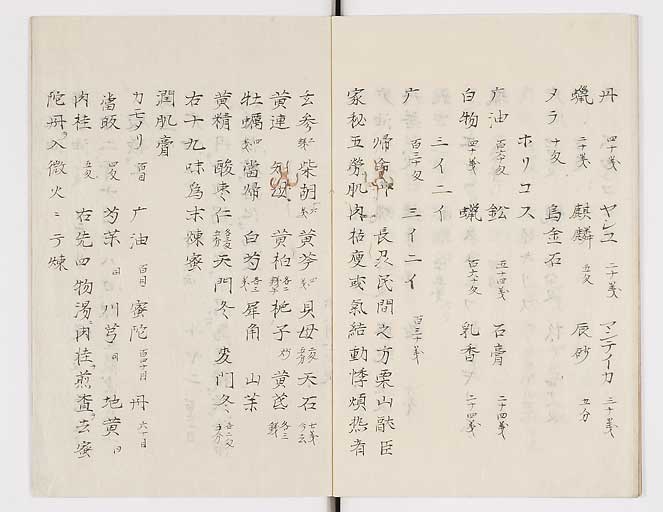 丹 四十戔 ヤシユ 二十戔 マンテイカ 三十戔
蠟 二十戔 麒麟 五匁 辰砂 五分
ヌラ 十匁 烏金石
ホリコス
广油 百六十匁 鉛 五十四戔 石膏 二十四戔
白物 四十戔 蠟 百六十匁 乳香 二十四戔
三イニイ
广 百二十匁 三イニイ 百三十戔
長及民間之方栗山獻臣
家秘五勞肌肉枯瘦或氣結動悸煩熱者
玄参 柴胡 黄芩 貝母 天石
黄連 知母 黄柏 梔子 炒 黄芪
牡蠣 當帰 白芍 犀角 山茱
黄精 酸棗仁 天門冬 麦門冬
右十九味為末煉蜜
潤肌膏
カモメリ 百目 广油 百目 蜜陀 百四十目 丹 六十目
當皈 四匁 芍薬 同 川芎 同 地黄 同
肉桂 五匁 右先四物湯肉桂煎渣去蜜
陀丹入微火ニテ煉